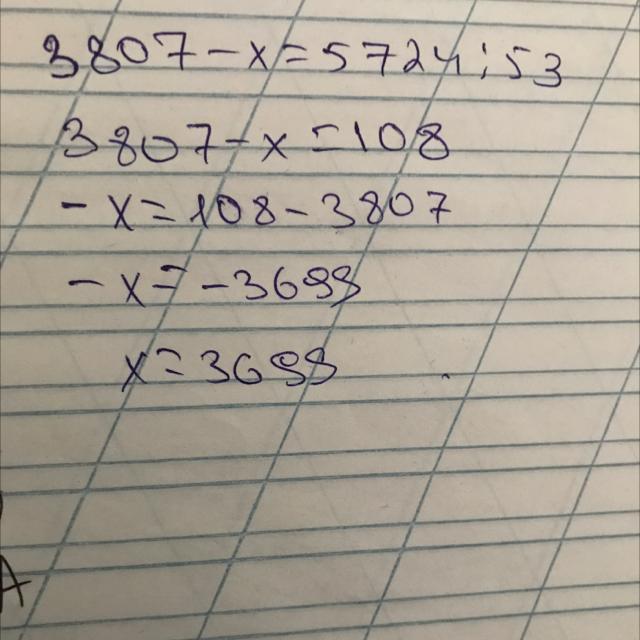 3807-x=5724:53
3807-x=108
-x=108-3807
-x=-3699
x=3699